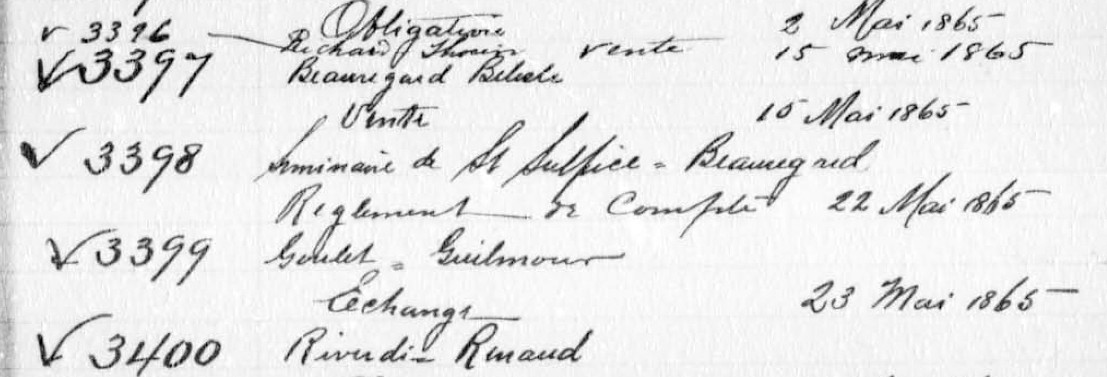 Obligation 2 Mai 1865
✓ 3396 Richard vente 15 mai 1865
✓ 3397 Beauregard Belisle
Vente 15 Mai 1865
✓ 3398 Seminaire de St Sulpice = Beauregard
Reglement de Compte 22 Mai 1865
✓ 3399 Goulet = Guilmour
Echange 23 Mai 1865
✓ 3400 Renaud